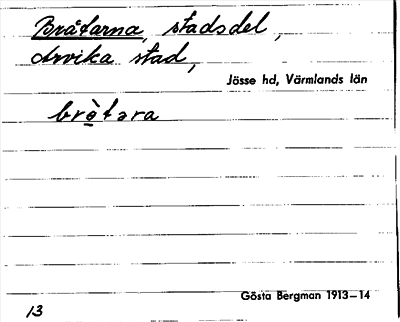 Bråtarna, stadsdel,
Arvika stad,
Jösse hd, Värmlands län
brò̱təra
Gösta Bergman 1913–14
13